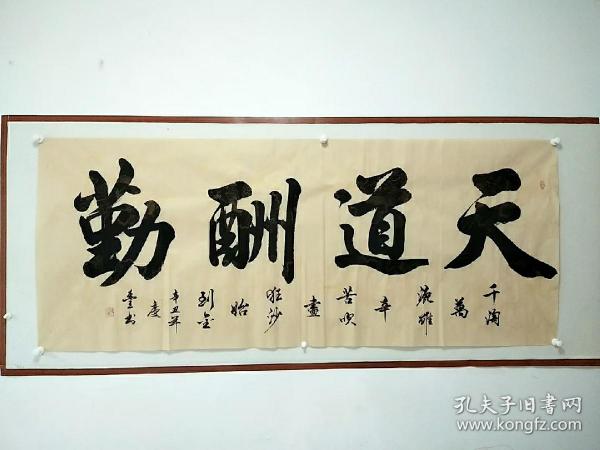 天道酬勤
千淘
萬
漉雖
辛
苦吹
盡
狂沙
始
到金
辛丑年
慶
書
孔夫子旧書网
www.kongfz.com